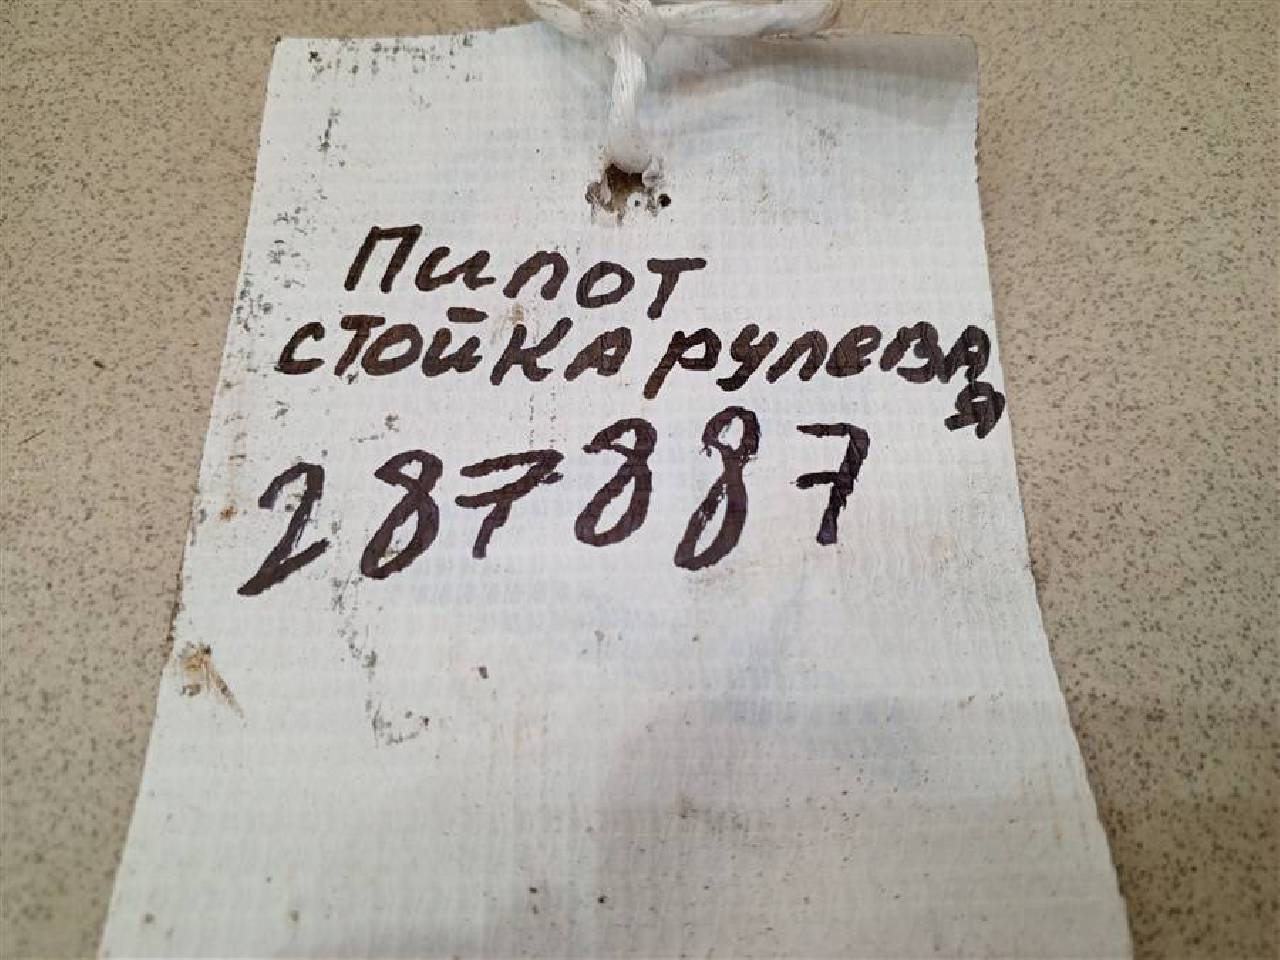 Пилот
стойка рулева
я
287887